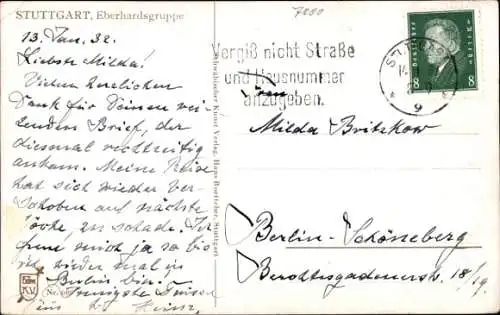 STUTTGART, Eberhardsgruppe
13. Jan. 32.
Liebste Milda!
Vielen herzlichen
Dank für Deinen rei-
zenden Brief, der
diesmal rechtzeitig
ankam. Meine Reise
hat sich wieder ver-
schoben auf nächste
Woche, zu schade.
freue mich ja so bis
ich wieder mal in
Berlin bin.
Innigste Deinen
Heinz
Schwäbischer Kunst Verlag, Hans Boettcher, Stuttgart
Vergiß nicht Straße
und Hausnummer
anzugeben.
STUTTGART
9
Deutsches Reich
8 8
Milda Britzkow
Berlin-Schöneberg
Berchtesgadenerstr. 18/19.